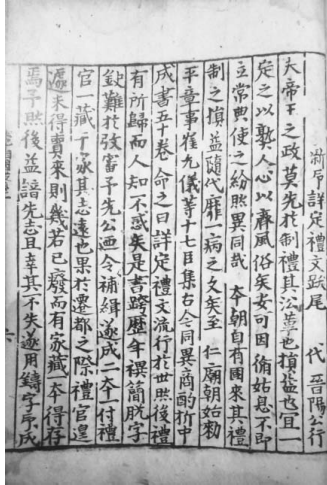 新序詳定禮文跋尾　代晉陽公行
夫帝王之政莫先於制禮其沿革也損益也宜一
定之以淑人心以齊風俗矣安可因循姑息不即
立常典使之紛然異同哉　本朝自有國來其禮
制之損益隨代靡一病之久矣至　仁廟朝始勅
平章事崔允儀等十七臣集古今同異商酌折中
成書五十卷命之曰詳定禮文流行於世然後禮
有所歸而人知不惑矣是書跨歷年禩簡脫字
缺難於攷審予先公迺令補緝遂成二本一付禮
官一藏于家其志遠也果於遷都之際禮官遑
遽未得賫來則幾若已廢而有家藏一本得存
焉予然後益諳先志且幸其不失遂用鑄字印成